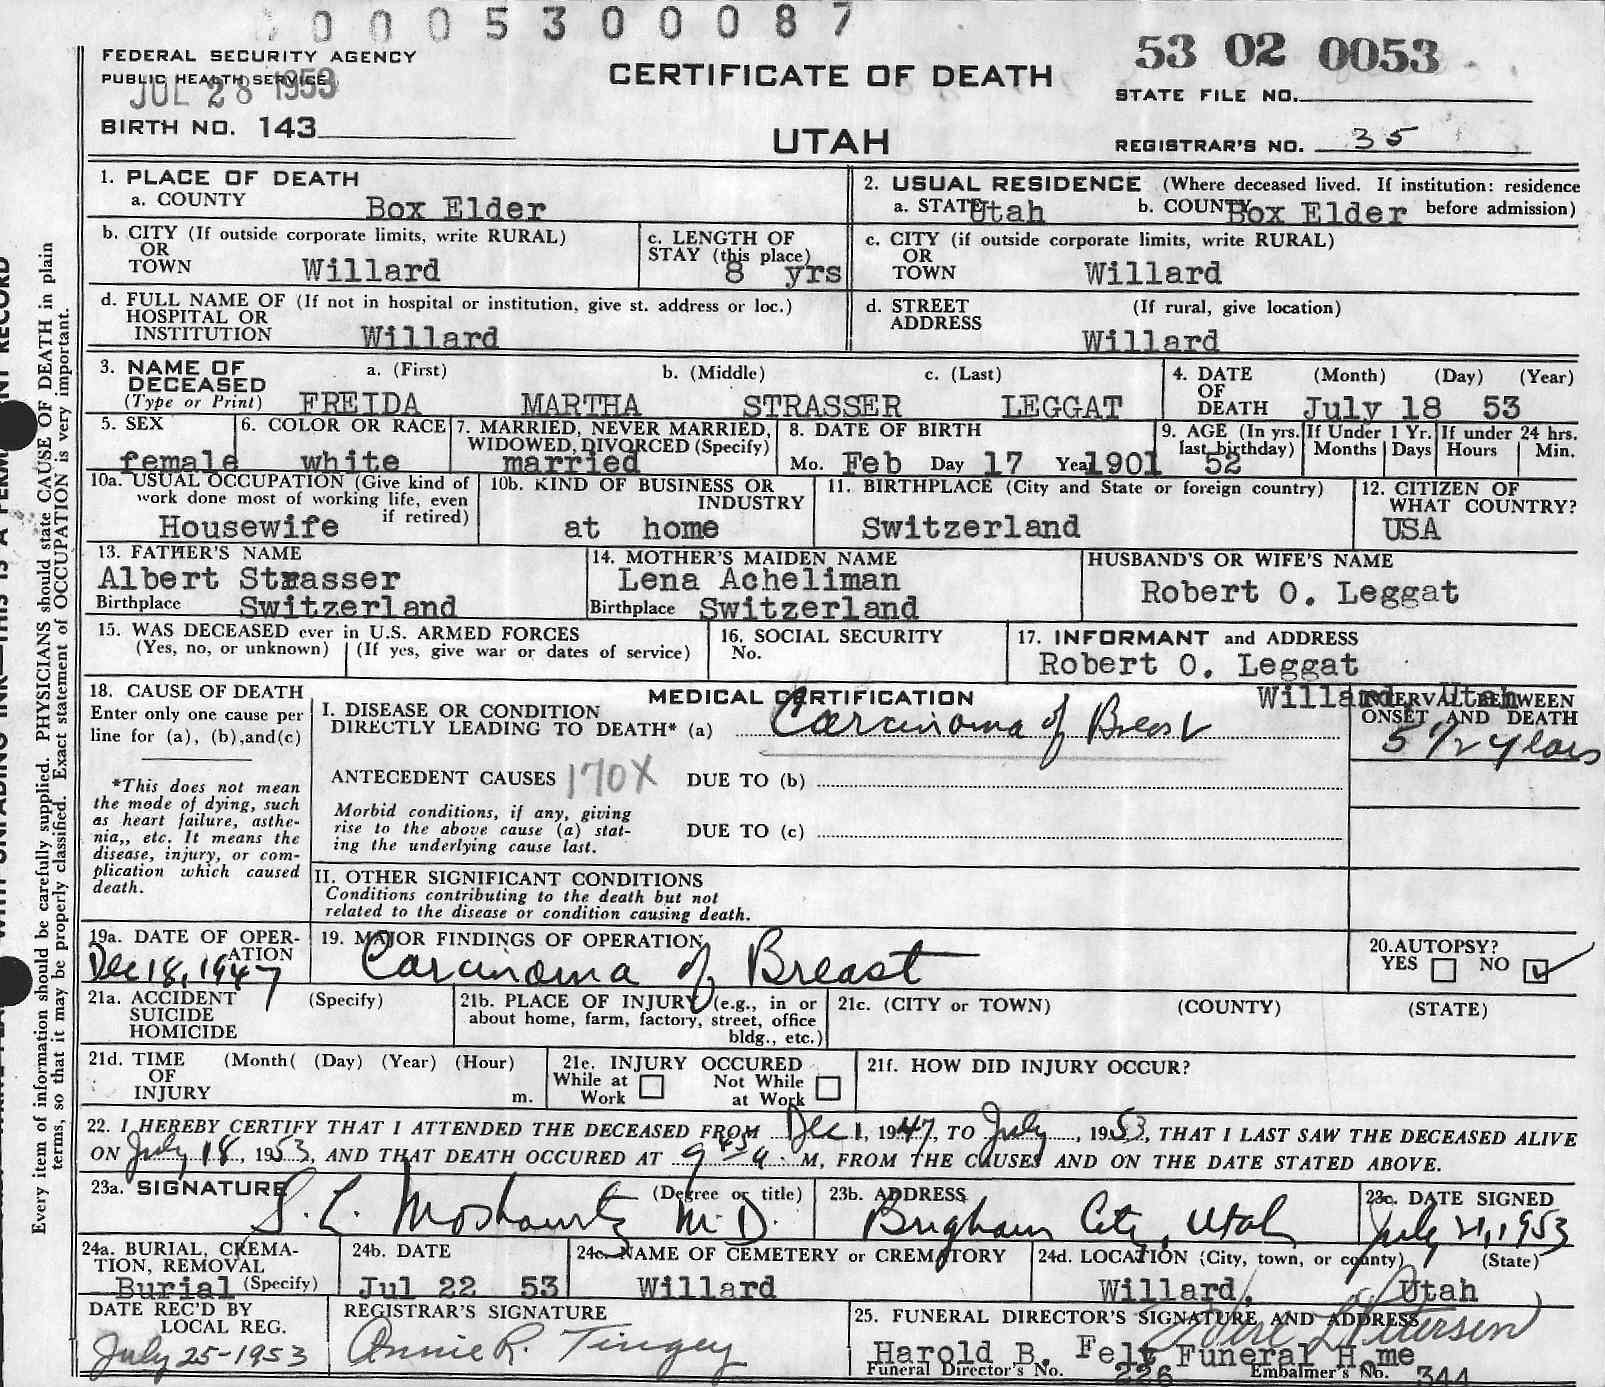 0 0 0 5 3 0 0 0 8 7
FEDERAL SECURITY AGENCY
PUBLIC HEALTH SERVICE
JUL 28 1953
BIRTH NO. 143
CERTIFICATE OF DEATH
UTAH
53 02 0053
STATE FILE NO.
REGISTRAR'S NO. 35
1. PLACE OF DEATH
a. COUNTY Box Elder
2. USUAL RESIDENCE (Where deceased lived. If institution: residence
a. STATE Utah b. COUNTY Box Elder before admission)
b. CITY (If outside corporate limits, write RURAL)
OR
TOWN Willard
c. LENGTH OF
STAY (this place)
8 yrs
c. CITY (if outside corporate limits, write RURAL)
OR
TOWN Willard
d. FULL NAME OF (If not in hospital or institution, give st. address or loc.)
HOSPITAL OR
INSTITUTION Willard
d. STREET (If rural, give location)
ADDRESS
Willard
3. NAME OF a. (First) b. (Middle) c. (Last)
DECEASED
(Type or Print) FREIDA MARTHA STRASSER LEGGAT
4. DATE (Month) (Day) (Year)
OF
DEATH July 18 53
5. SEX
female
6. COLOR OR RACE
white
7. MARRIED, NEVER MARRIED,
WIDOWED, DIVORCED (Specify)
married
8. DATE OF BIRTH
Mo. Feb Day 17 Year 1901
9. AGE (In yrs.
last birthday)
52
If Under 1 Yr.
Months Days
If under 24 hrs.
Hours Min.
10a. USUAL OCCUPATION (Give kind of
work done most of working life, even
if retired)
Housewife
10b. KIND OF BUSINESS OR
INDUSTRY
at home
11. BIRTHPLACE (City and State or foreign country)
Switzerland
12. CITIZEN OF
WHAT COUNTRY?
USA
13. FATHER'S NAME
Albert Strasser
Birthplace Switzerland
14. MOTHER'S MAIDEN NAME
Lena Acheliman
Birthplace Switzerland
HUSBAND'S OR WIFE'S NAME
Robert O. Leggat
15. WAS DECEASED ever in U.S. ARMED FORCES
(Yes, no, or unknown) (If yes, give war or dates of service)
16. SOCIAL SECURITY
No.
17. INFORMANT and ADDRESS
Robert O. Leggat
Willard Utah
18. CAUSE OF DEATH
Enter only one cause per
line for (a), (b),and(c)
*This does not mean
the mode of dying, such
as heart failure, asthe-
nia,, etc. It means the
disease, injury, or com-
plication which caused
death.
MEDICAL CERTIFICATION
I. DISEASE OR CONDITION
DIRECTLY LEADING TO DEATH* (a) Carcinoma of Breast
INTERVAL BETWEEN
ONSET AND DEATH
5 1/2 years
ANTECEDENT CAUSES 170X DUE TO (b)
Morbid conditions, if any, giving
rise to the above cause (a) stat-
ing the underlying cause last.
DUE TO (c)
II. OTHER SIGNIFICANT CONDITIONS
Conditions contributing to the death but not
related to the disease or condition causing death.
19a. DATE OF OPER-
ATION
Dec 18, 1947
19. MAJOR FINDINGS OF OPERATION
Carcinoma of Breast
20. AUTOPSY?
YES NO
21a. ACCIDENT (Specify)
SUICIDE
HOMICIDE
21b. PLACE OF INJURY (e.g., in or
about home, farm, factory, street, office
bldg., etc.)
21c. (CITY or TOWN) (COUNTY) (STATE)
21d. TIME (Month( (Day) (Year) (Hour)
OF
INJURY m.
21e. INJURY OCCURED
While at Not While
Work at Work
21f. HOW DID INJURY OCCUR?
22. I HEREBY CERTIFY THAT I ATTENDED THE DECEASED FROM Dec 1, 1947, TO July, 1953, THAT I LAST SAW THE DECEASED ALIVE
ON July 18, 1953, AND THAT DEATH OCCURED AT 9 45 a. M, FROM THE CAUSES AND ON THE DATE STATED ABOVE.
23a. SIGNATURE (Degree or title)
S. L. Moskowitz M.D.
23b. ADDRESS
Brigham City, Utah
23c. DATE SIGNED
July 21, 1953
24a. BURIAL, CREMA-
TION, REMOVAL
Burial (Specify)
24b. DATE
Jul 22 53
24c. NAME OF CEMETERY or CREMATORY
Willard
24d. LOCATION (City, town, or county) (State)
Willard, Utah
DATE REC'D BY
LOCAL REG.
July 25-1953
REGISTRAR'S SIGNATURE
Annie R. Tingey
25. FUNERAL DIRECTOR'S SIGNATURE AND ADDRESS
Petersen
Harold B. Felt Funeral Home
Funeral Director's No. 226 Embalmer's No. 344
Every item of information should be carefully supplied. PHYSICIANS should state CAUSE OF DEATH in plain
terms, so that it may be properly classified. Exact statement of OCCUPATION is very important.